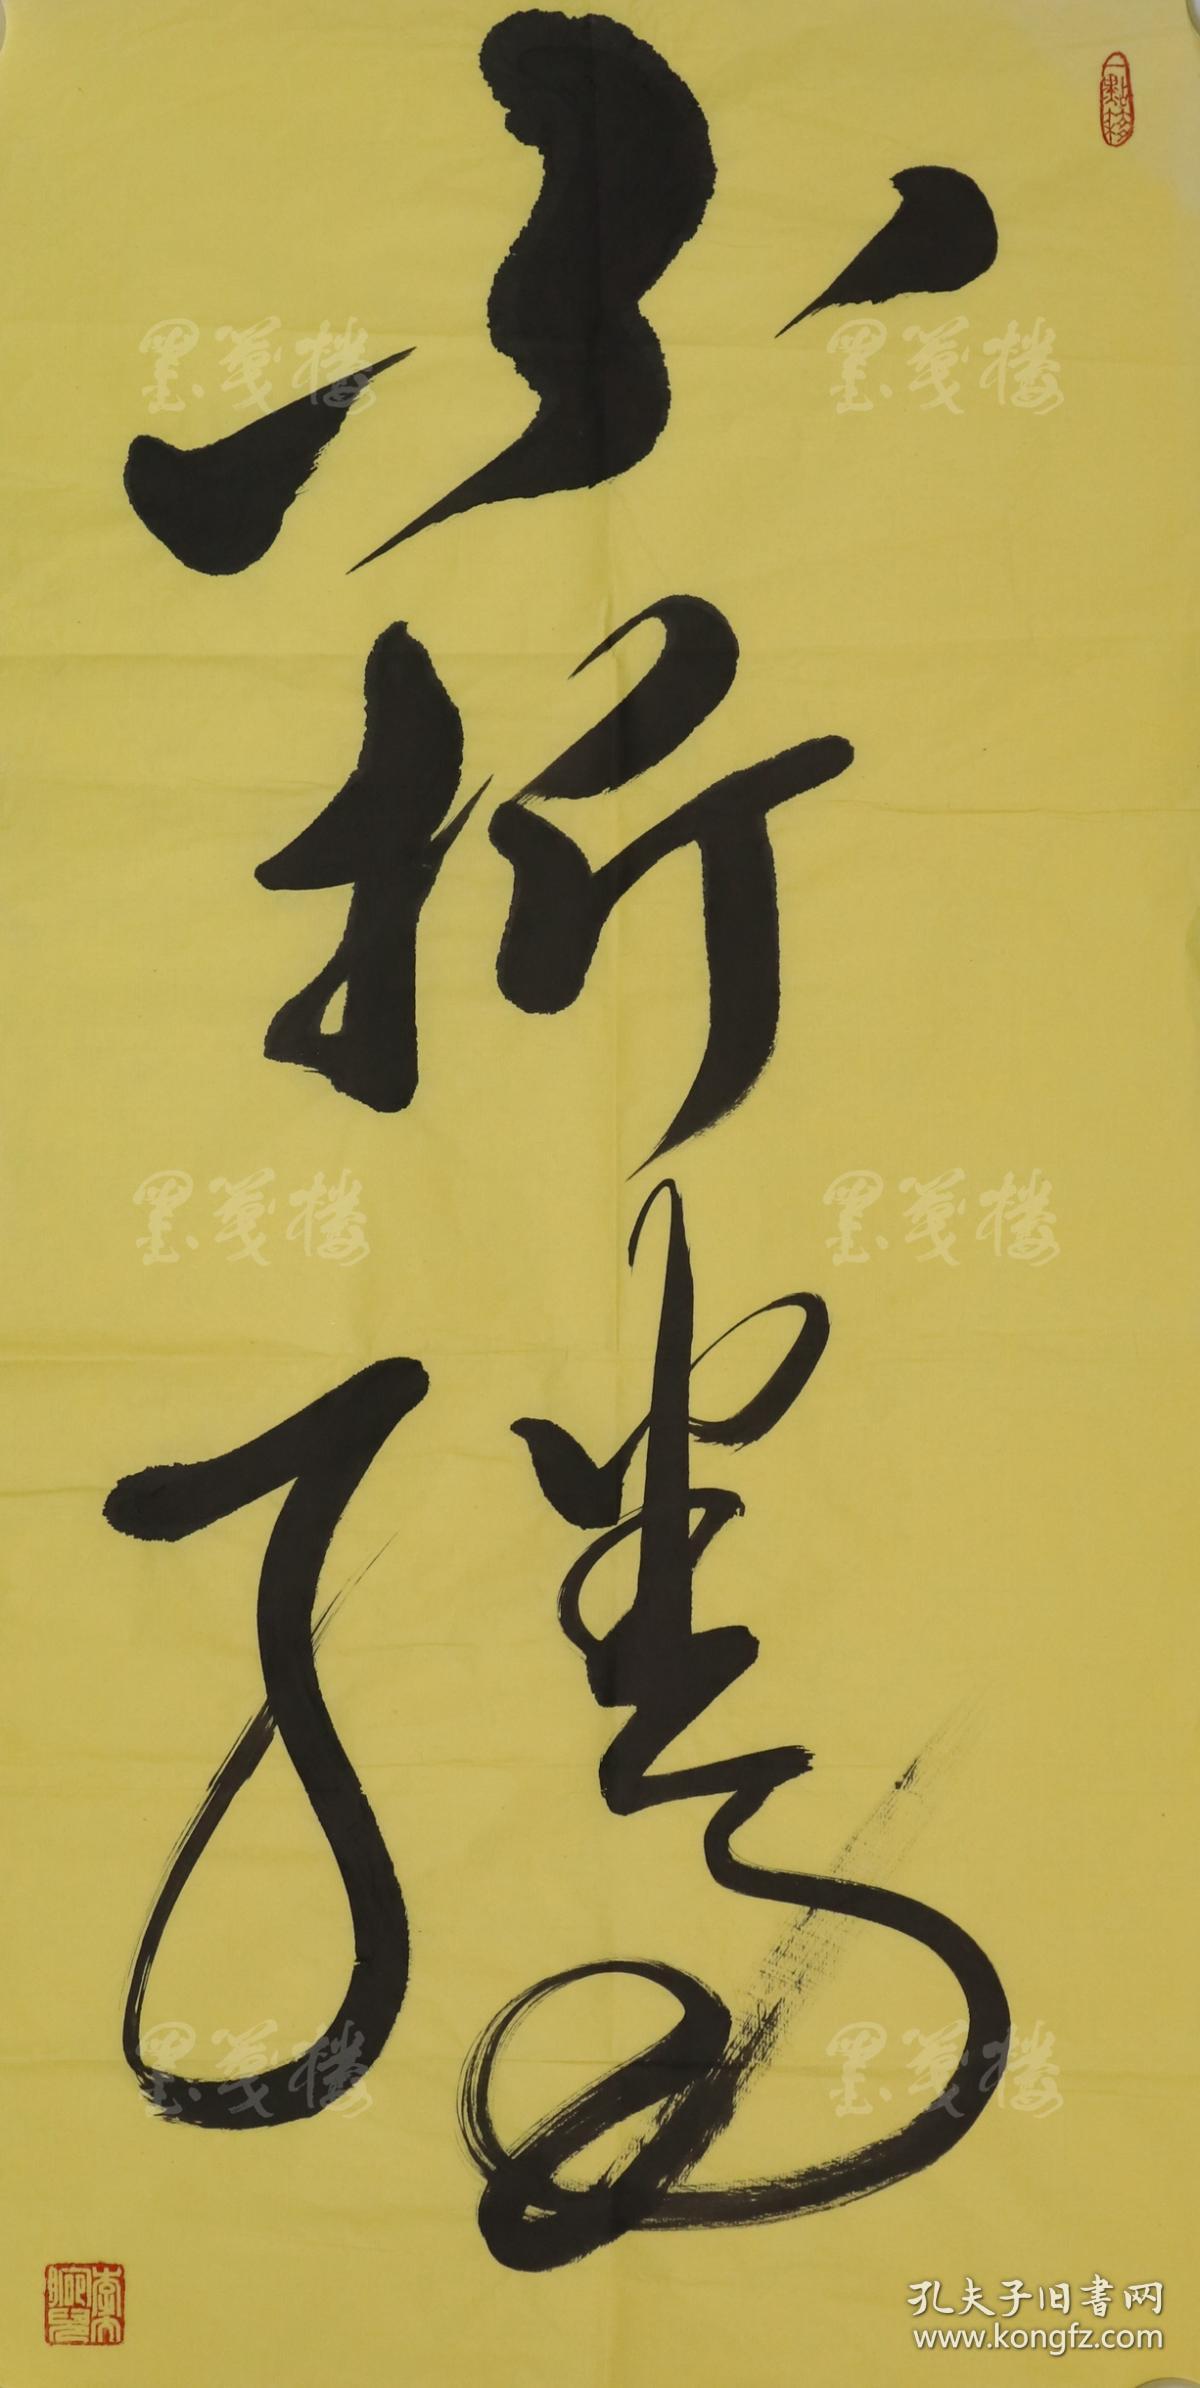 不折騰
墨笺楼 墨笺楼
墨笺楼 墨笺楼
墨笺楼 墨笺楼
孔夫子旧书网
www.kongfz.com